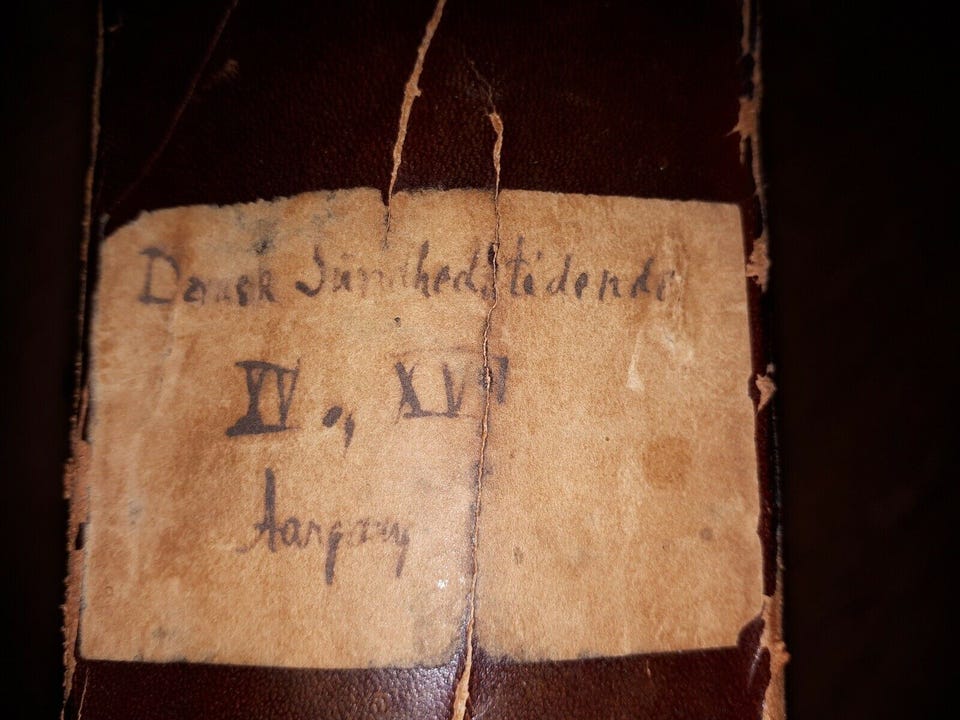 Dansk Sundhedstidende
XV., XVI
Aargang